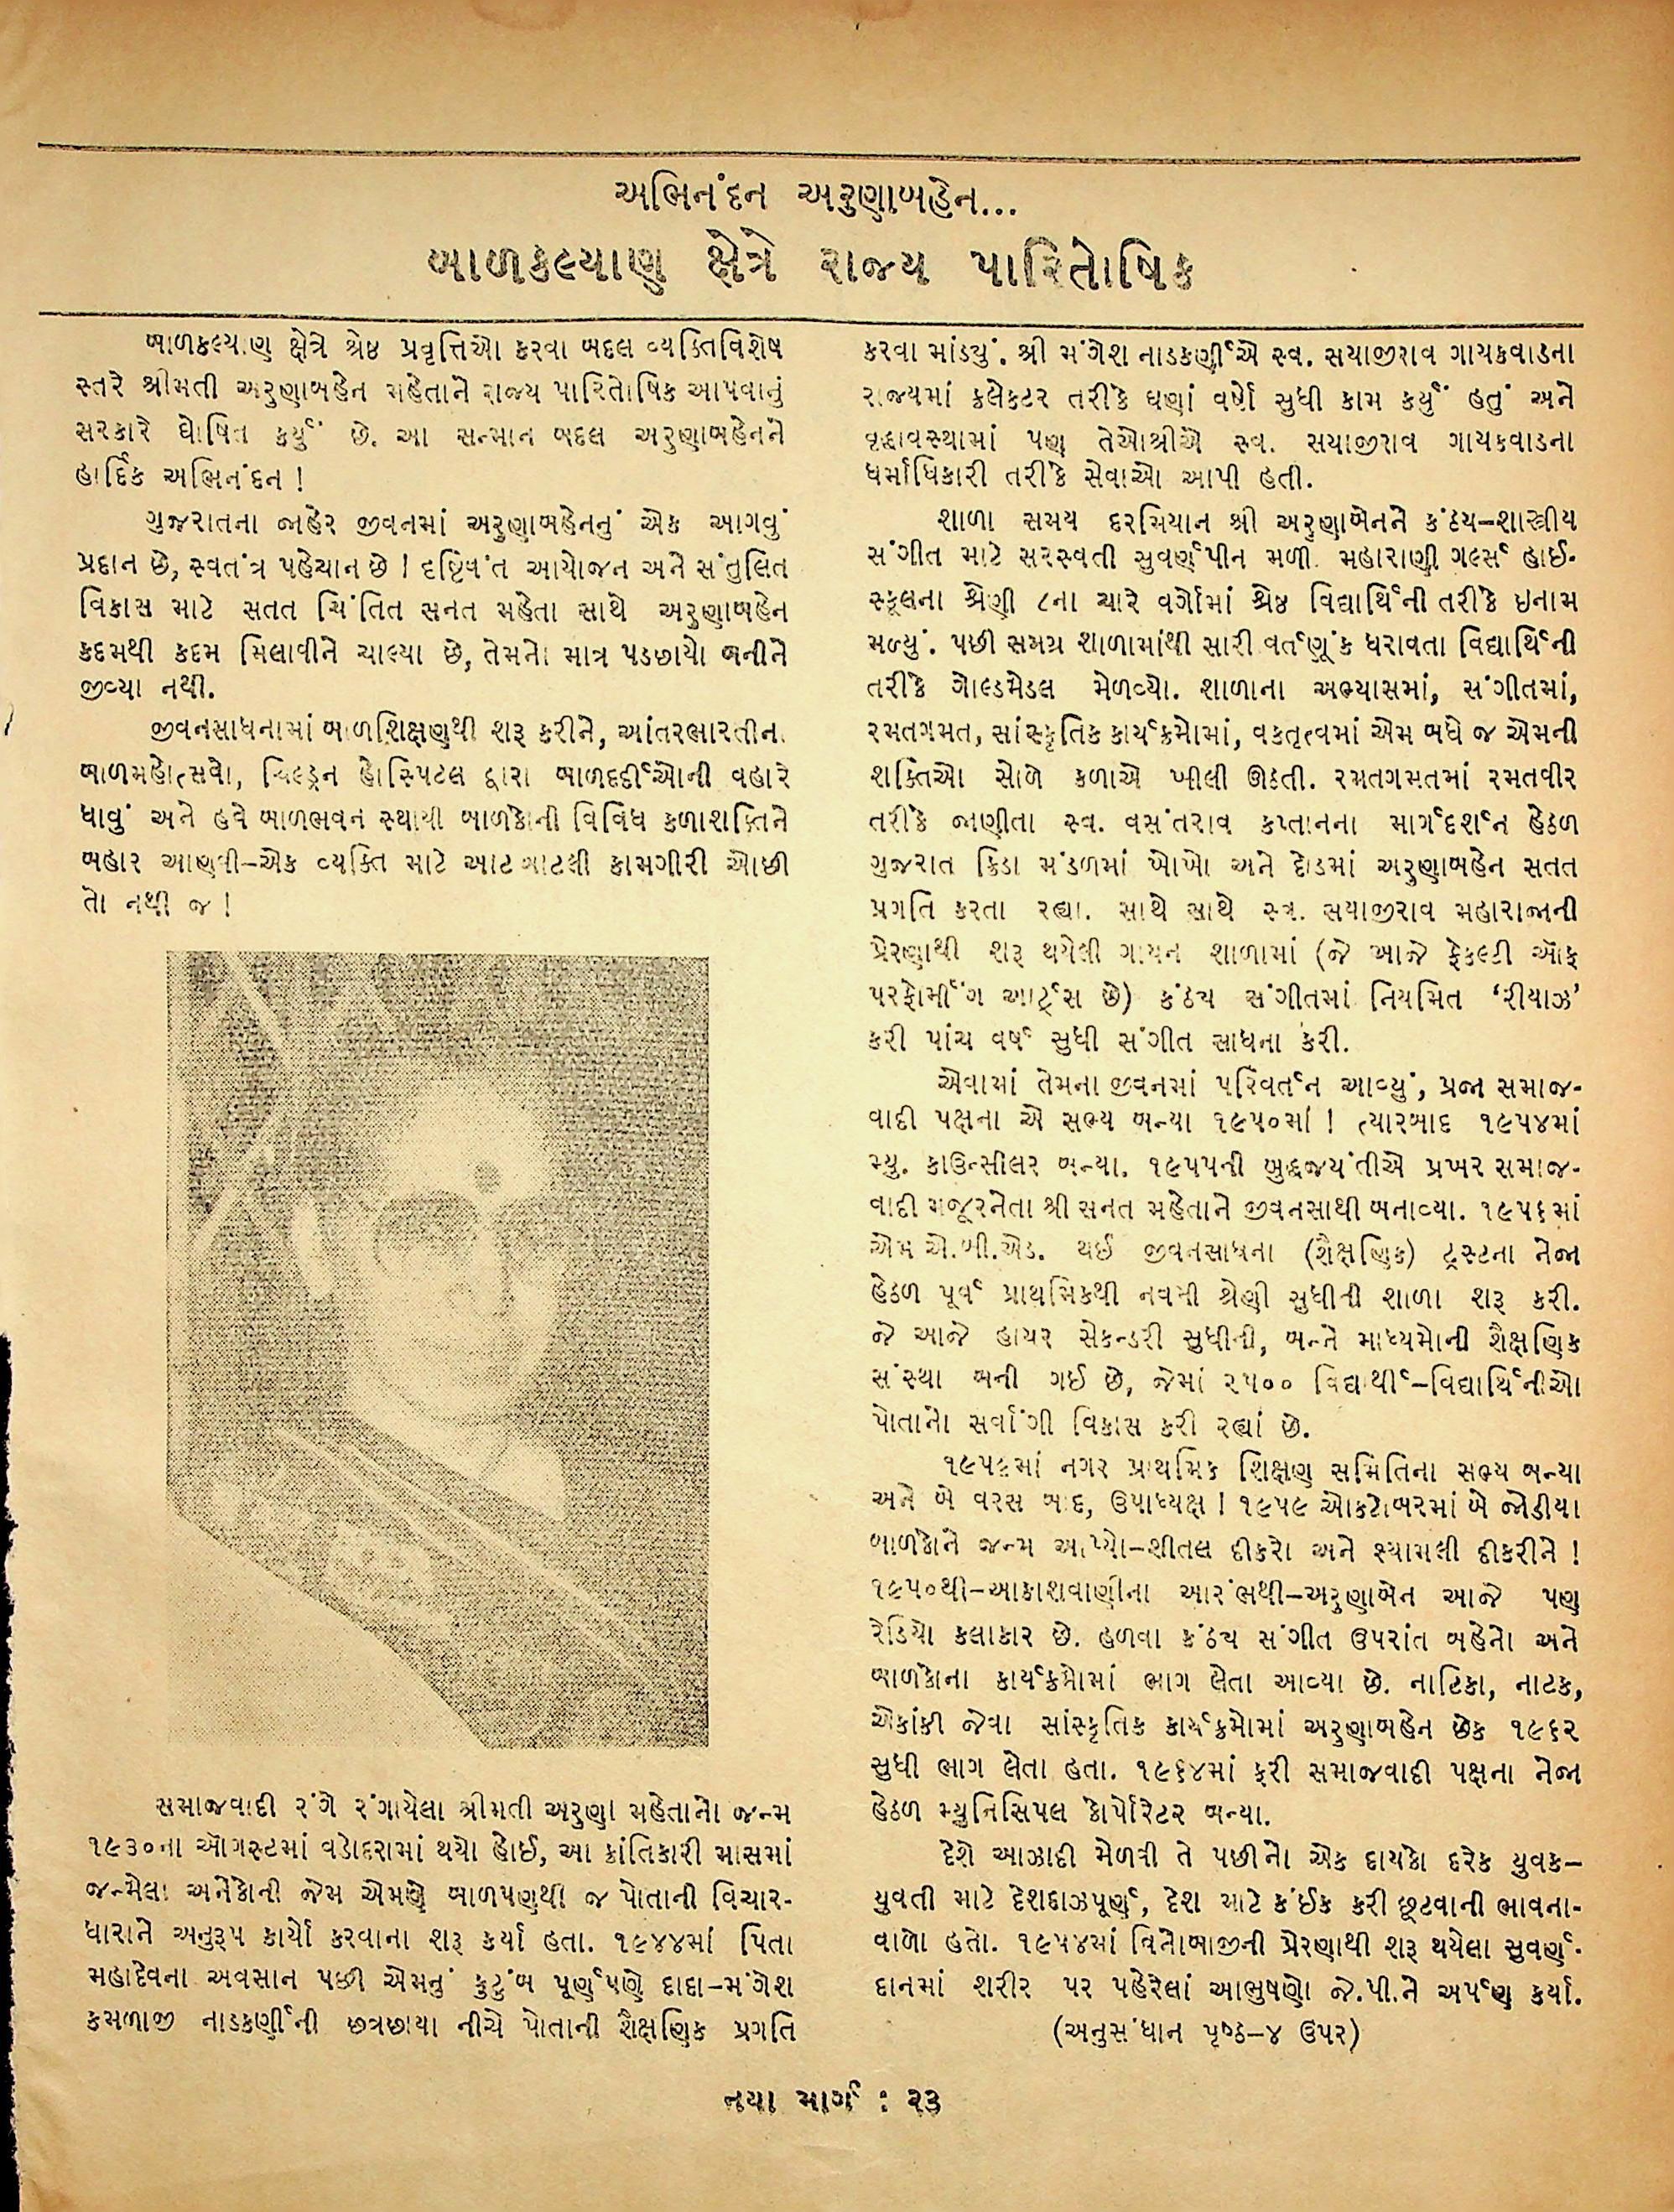 અભિનંદન અરુણાબહેન...
બાળકલ્યાણ ક્ષેત્રે રાજ્ય પારિતોષિક
બાળકલ્યાણ ક્ષેત્રે શ્રેષ્ઠ પ્રવૃત્તિઓ કરવા બદલ વ્યક્તિવિશેષ
સ્તરે શ્રીમતી અરુણાબહેન મહેતાને રાજ્ય પારિતોષિક આપવાનું
સરકારે ઘોષિત કર્યું છે. આ સન્માન બદલ અરુણાબહેનને
હાર્દિક અભિનંદન !
ગુજરાતના જાહેર જીવનમાં અરુણાબહેનનું એક આગવું
પ્રદાન છે, સ્વતંત્ર પહેચાન છે ! દૃષ્ટિવંત આયોજન અને સંતુલિત
વિકાસ માટે સતત ચિંતિત સનત મહેતા સાથે અરુણાબહેન
કદમથી કદમ મિલાવીને ચાલ્યા છે, તેમનો માત્ર પડછાયો બનીને
જીવ્યા નથી.
જીવનસાધનામાં બાળશિક્ષણથી શરૂ કરીને, આંતરભારતીના
બાળમહોત્સવો, ચિલ્ડ્રન હોસ્પિટલ દ્વારા બાળદર્દીઓની વહારે
ધાવું અને હવે બાળભવન સ્થાપી બાળકોની વિવિધ કળાશક્તિને
બહાર આણવી–એક વ્યક્તિ માટે આટઆટલી કામગીરી ઓછી
તો નથી જ !
સમાજવાદી રંગે રંગાયેલા શ્રીમતી અરુણા મહેતાનો જન્મ
૧૯૩૦ના ઑગસ્ટમાં વડોદરામાં થયો હોઈ, આ ક્રાંતિકારી માસમાં
જન્મેલા અનેકોની જેમ એમણે બાળપણથી જ પોતાની વિચાર-
ધારાને અનુરૂપ કાર્યો કરવાના શરૂ કર્યા હતા. ૧૯૪૪માં પિતા
મહાદેવના અવસાન પછી એમનું કુટુંબ પૂર્ણપણે દાદા–મંગેશ
કમળાજી નાડકર્ણીની છત્રછાયા નીચે પોતાની શૈક્ષણિક પ્રગતિ
કરવા માંડયું. શ્રી મંગેશ નાડકર્ણીએ સ્વ. સયાજીરાવ ગાયકવાડના
રાજ્યમાં કલેકટર તરીકે ઘણાં વર્ષો સુધી કામ કર્યું હતું અને
વૃદ્ધાવસ્થામાં પણ તેઓશ્રીએ સ્વ. સયાજીરાવ ગાયકવાડના
ધર્માધિકારી તરીકે સેવાઓ આપી હતી.
શાળા સમય દરમિયાન શ્રી અરુણાબેનને કંઠય–શાસ્ત્રીય
સંગીત માટે સરસ્વતી સુવર્ણપીન મળી. મહારાણી ગર્લ્સ હાઈ-
સ્કૂલના શ્રેણી ૮ના ચારે વર્ગોમાં શ્રેષ્ઠ વિદ્યાર્થિની તરીકે ઇનામ
મળ્યું. પછી સમગ્ર શાળામાંથી સારી વર્તણૂંક ધરાવતા વિદ્યાર્થિની
તરીકે ગોલ્ડમેડલ મેળવ્યો. શાળાના અભ્યાસમાં, સંગીતમાં,
રમતગમત, સાંસ્કૃતિક કાર્યક્રમોમાં, વકતૃત્વમાં એમ બધે જ એમની
શક્તિઓ સોળે કળાએ ખીલી ઊઠતી. રમતગમતમાં રમતવીર
તરીકે જાણીતા સ્વ. વસંતરાવ કપ્તાનના માર્ગદર્શન હેઠળ
ગુજરાત ક્રિડા મંડળમાં ખોખો અને દોડમાં અરુણાબહેન સતત
પ્રગતિ કરતા રહ્યા. સાથે સાથે સ્વ. સયાજીરાવ મહારાજાની
પ્રેરણાથી શરૂ થયેલી ગાયન શાળામાં (જે આજે ફેકલ્ટી ઑફ
પરફોર્મીંગ આર્ટ્સ છે) કંઠય સંગીતમાં નિયમિત ‘રીયાઝ’
કરી પાંચ વર્ષ સુધી સંગીત સાધના કરી.
એવામાં તેમના જીવનમાં પરિવર્તન આવ્યું, પ્રજા સમાજ-
વાદી પક્ષના એ સભ્ય બન્યા ૧૯૫૦માં ! ત્યારબાદ ૧૯૫૪માં
મ્યુ. કાઉન્સીલર બન્યા. ૧૯૫૫ની બુદ્ધજયંતીએ પ્રખર સમાજ-
વાદી મજૂરનેતા શ્રી સનત મહેતાને જીવનસાથી બનાવ્યા. ૧૯૫૬માં
એમ એ.બી.એડ. થઈ જીવનસાધના (શૈક્ષણિક) ટ્રસ્ટના નેજા
હેઠળ પૂર્વ પ્રાથમિકથી નવમી શ્રેણી સુધીની શાળા શરૂ કરી.
જે આજે હાયર સેકન્ડરી સુધીની, બન્ને માધ્યમોની શૈક્ષણિક
સંસ્થા બની ગઈ છે, જેમાં ૨૫૦૦ વિદ્યાર્થી–વિદ્યાર્થિનીઓ
પોતાનો સર્વાંગી વિકાસ કરી રહ્યાં છે.
૧૯૫૬માં નગર પ્રાથમિક શિક્ષણ સમિતિના સભ્ય બન્યા
અને બે વરસ બાદ, ઉપાધ્યક્ષ ! ૧૯૫૯ ઓકટોબરમાં બે જોડીયા
બાળકોને જન્મ આપ્યો–શીતલ દીકરો અને શ્યામલી દીકરીને !
૧૯૫૦થી–આકાશવાણીના આરંભથી–અરુણાબેન આજે પણ
રેડિયો કલાકાર છે. હળવા કંઠય સંગીત ઉપરાંત બહેનો અને
બાળકોના કાર્યક્રમોમાં ભાગ લેતા આવ્યા છે. નાટિકા, નાટક,
એકાંકી જેવા સાંસ્કૃતિક કાર્યક્રમોમાં અરુણાબહેન છેક ૧૯૬૨
સુધી ભાગ લેતા હતા. ૧૯૬૪માં ફરી સમાજવાદી પક્ષના નેજા
હેઠળ મ્યુનિસિપલ કોર્પોરેટર બન્યા.
દેશે આઝાદી મેળવી તે પછીનો એક દાયકો દરેક યુવક–
યુવતી માટે દેશદાઝપૂર્ણ, દેશ માટે કંઈક કરી છૂટવાની ભાવના-
વાળો હતો. ૧૯૫૪માં વિનોબાજીની પ્રેરણાથી શરૂ થયેલા સુવર્ણ-
દાનમાં શરીર પર પહેરેલાં આભુષણો જે.પી.ને અર્પણ કર્યા.
(અનુસંધાન પૃષ્ઠ–૪ ઉપર)
નયા માર્ગ : ૨૩